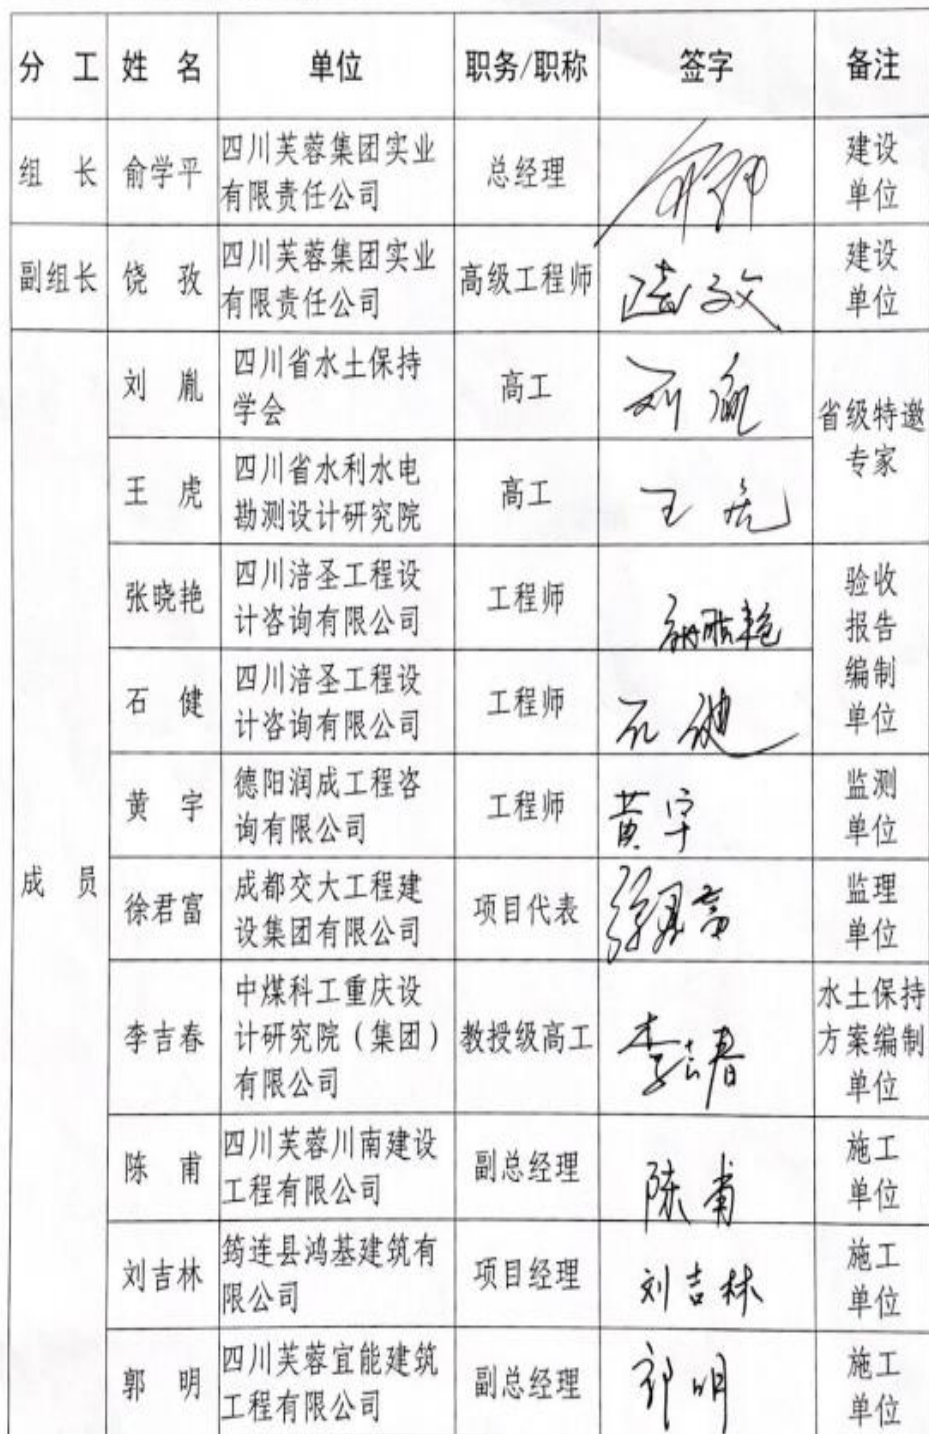 分 工 姓 名 单位 职务/职称 签字 备注
组 长 俞学平 四川芙蓉集团实业 有限责任公司 总经理 建设 单位
副组长 饶 孜 四川芙蓉集团实业 有限责任公司 高级工程师 建设 单位
成 员
刘 胤 四川省水土保持 学会 高工 刘胤 省级特邀 专家
王 虎 四川省水利水电 勘测设计研究院 高工 王虎
张晓艳 四川涪圣工程设 计咨询有限公司 工程师 张晓艳 验收 报告 编制 单位
石 健 四川涪圣工程设 计咨询有限公司 工程师 石健
黄 宇 德阳润成工程咨 询有限公司 工程师 黄宇 监测 单位
徐君富 成都交大工程建 设集团有限公司 项目代表 徐君富 监理 单位
李吉春 中煤科工重庆设 计研究院（集团） 有限公司 教授级高工 李吉春 水土保持 方案编制 单位
陈 甫 四川芙蓉川南建设 工程有限公司 副总经理 陈甫 施工 单位
刘吉林 筠连县鸿基建筑有 限公司 项目经理 刘吉林 施工 单位
郭 明 四川芙蓉宜能建筑 工程有限公司 副总经理 郭明 施工 单位